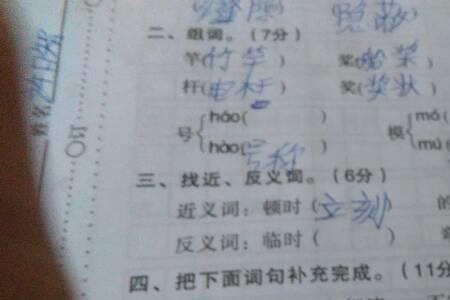 二、组词。(7分)
竿(竹竿) 桨(船桨
杆(电杆) 奖(奖状
号{háo( ) 模{mó(
hào(号称 mú(
三、找近、反义词。(6分)
近义词:顿时(立刻)
反义词:临时( )
四、把下面词句补充完成。(11分
姓名
订